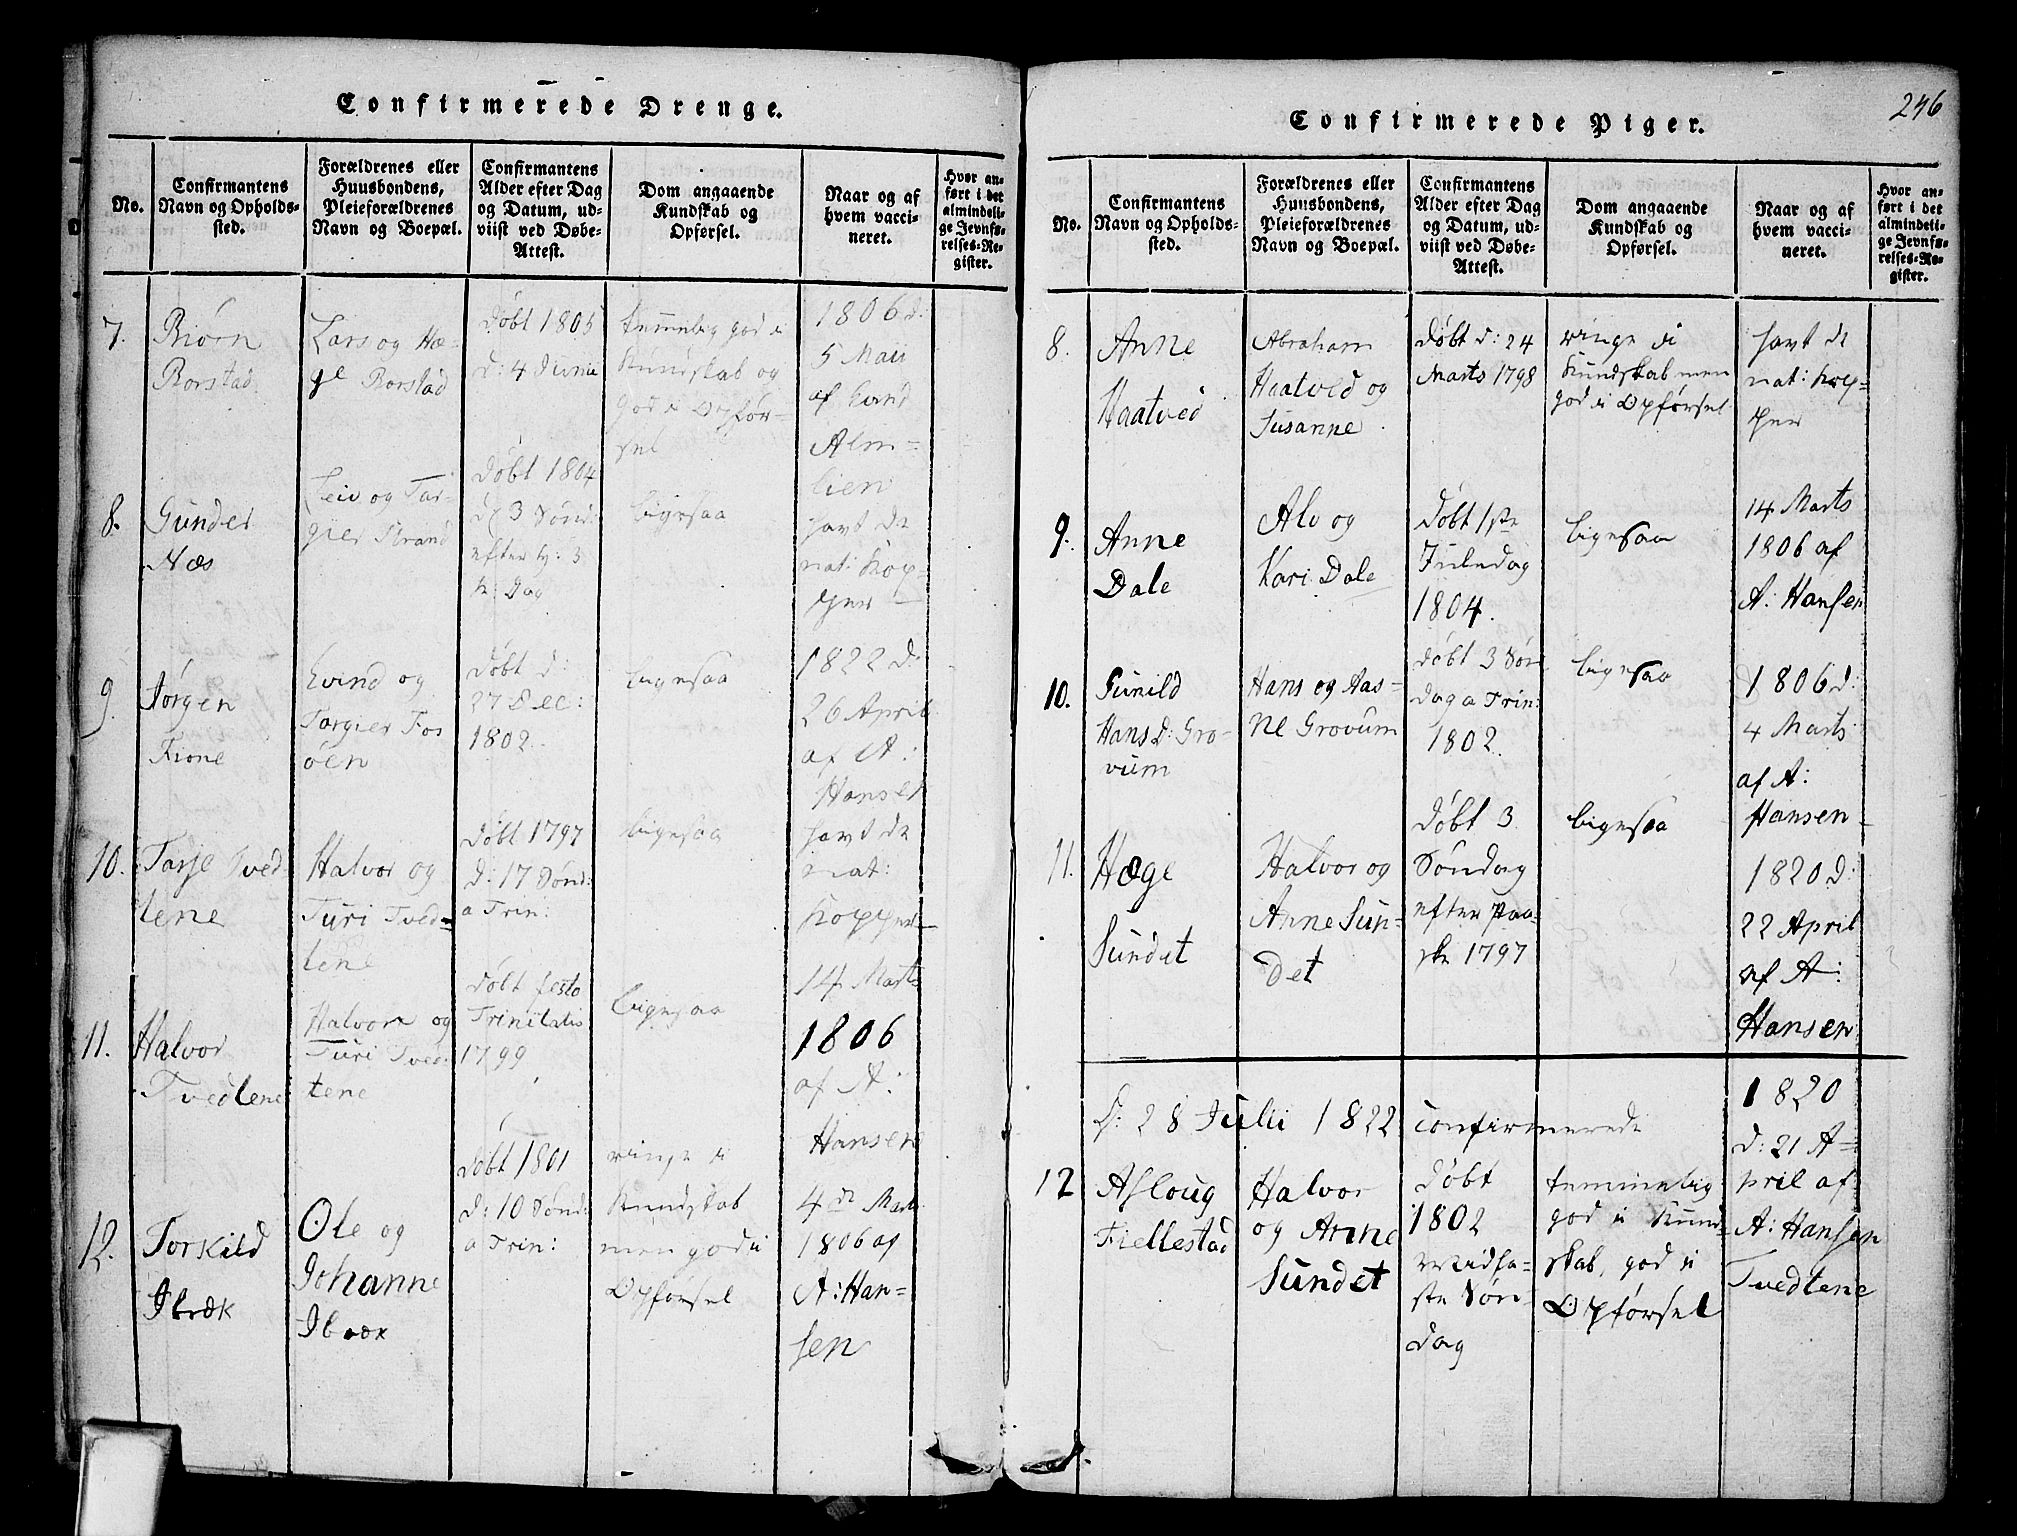 Confirmerede Drenge.
No.
Confirmantens
Navn og Opholds-
sted.
Forældrenes eller
Huusbondens,
Pleieforældrenes
Navn og Boepæl.
Confirmantens
Alder efter Dag
og Datum, ud-
viist ved Døbe-
Attest.
Dom angaaende
Kundskab og
Opførsel.
Naar og af
hvem vacci-
neret.
Hvor an-
ført i det
almindeli-
ge Jevnfø-
relses-Re-
gister.
7.
Biørn
Rorstad
Lars og Hæ-
ge Rorstad
Døbt 1805
d: 4 Junii
temmelig god i
Kundskab og
god i Opfør-
sel
1806 d:
5 Maii
af Evind
Alm-
lien
8.
Gunder
Næs
Leiv og Tar-
gier Strand
Døbt 1804
3 Sønd:
efter H: 3
K: Dag
ligesaa
havt de
nat: Kop-
per
9.
Jørgen
Fione
Evind og
Targier Fos
øen
Døbt d:
27 Dec:
1802
ligesaa
1822 d.
26 April
af A:
Hansen
10.
Tarje Tved-
tene
Halvor og
Turi Tved-
tene
Døbt 1797
d: 17 Sønd:
a Trin:
ligesaa
havt de
nat:
Kopper
11.
Halvor
Tvedtene
Halvor og
Turi Tved-
tene
Døbt festo
Trinitatis
1799
ligesaa
14 Marts
1806
af A:
Hansen
12.
Torkild
Ibræk
Ole og
Johanne
Ibræk
Døbt 1801
D: 10 Sønd:
a Trin:
ringe i
Kundskab
men god i
Opførsel
4de Marts
1806 af
A: Han-
sen
246
Confirmerede Piger.
No.
Confirmantens
Navn og Opholds-
sted.
Forældrenes eller
Huusbondens,
Pleieforældrenes
Navn og Boepæl.
Confirmantens
Alder efter Dag
og Datum, ud-
viist ved Døbe-
Attest.
Dom angaaende
Kundskab og
Opførsel.
Naar og af
hvem vacci-
neret.
Hvor an-
ført i det
almindeli-
ge Jevnfø-
relses-Re-
gister.
8.
Anne
Haatved
Abraham
Haatved og
Susanne
Døbt d: 24
Marts 1798
ringe i
Kundskab men
god i Opførsel
havt de
nat: Kop-
per
9.
Anne
Dale
Alv og
Kari Dale
Døbt 1ste
Juledag
1804.
ligesaa
14 Marts
1806 af
A: Hansen
10.
Gunild
Hans d: Gro-
vum
Hans og Aas-
ne Grovum
Døbt 3 Søn
dag a Trin:
1802.
ligesaa
1806 d:
4 Marts
af A:
Hansen
11.
Hæge
Sundet
Halvor og
Anne Sun-
det
Døbt 3
Søndag
efter Paa-
ske 1797
ligesaa
1820 d:
22 April
af A:
Hansen
D: 28 Julii 1822 confirmerede
12
Asloug
Fiellestad
Halvor
og Anne
Sundet
Døbt
1802
Midfa-
ste Søn-
dag
temmelig
god i Kund-
skab, god i
Opførsel
1820
d: 21 A-
pril af
A: Hansen
Tvedtene